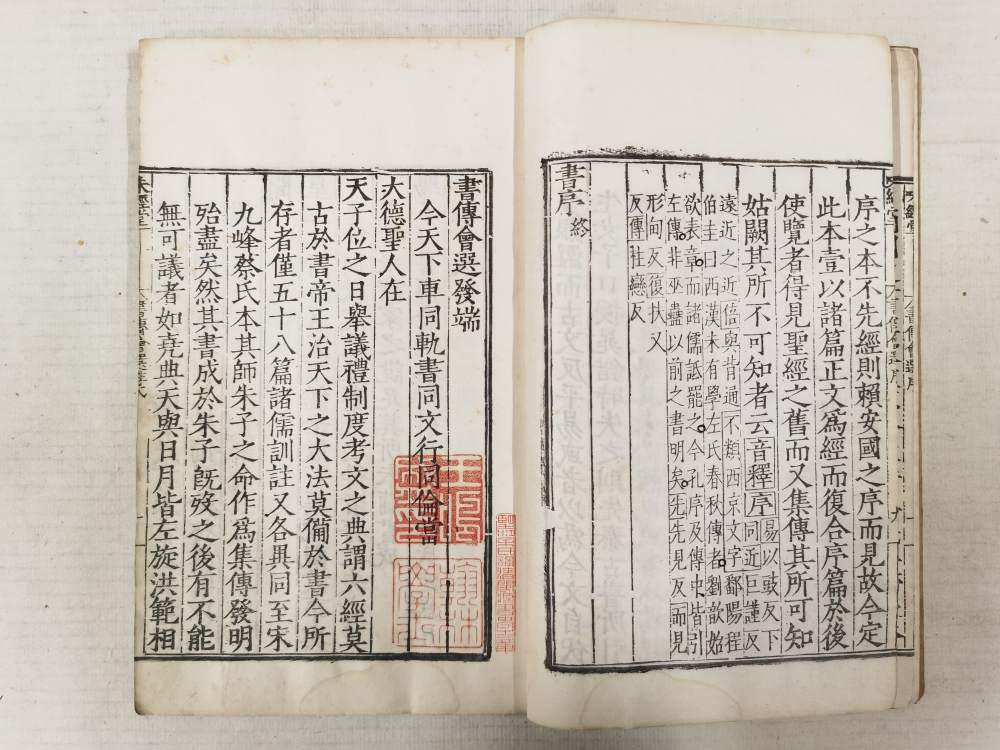 序之本不先經則賴安國之序而見故今定
此本壹以諸篇正文爲經而復合序篇於後
使覽者得見聖經之舊而又集傳其所可知
姑闕其所不可知者云音釋序易以豉反下
同近巨謹反
遠近之近倍與背通不類西京文字鄱陽程
伯圭曰西漢末有學左氏春秋傳者劉歆始
欲表章而諸儒詆罷之今孔序及傳中皆引
左傳非巫蠱以前之書明矣先先見反而見
形甸反復扶又
反傳社戀反
書序終
書傳會選發端
今天下車同軌書同文行同倫當
大德聖人在
天子位之日舉議禮制度考文之典謂六經莫
古於書帝王治天下之大法莫備於書今所
存者僅五十八篇諸儒訓註又各異同至宋
九峰蔡氏本其師朱子之命作爲集傳發明
殆盡矣然其書成於朱子旣歿之後有不能
無可議者如堯典天與日月皆左旋洪範相